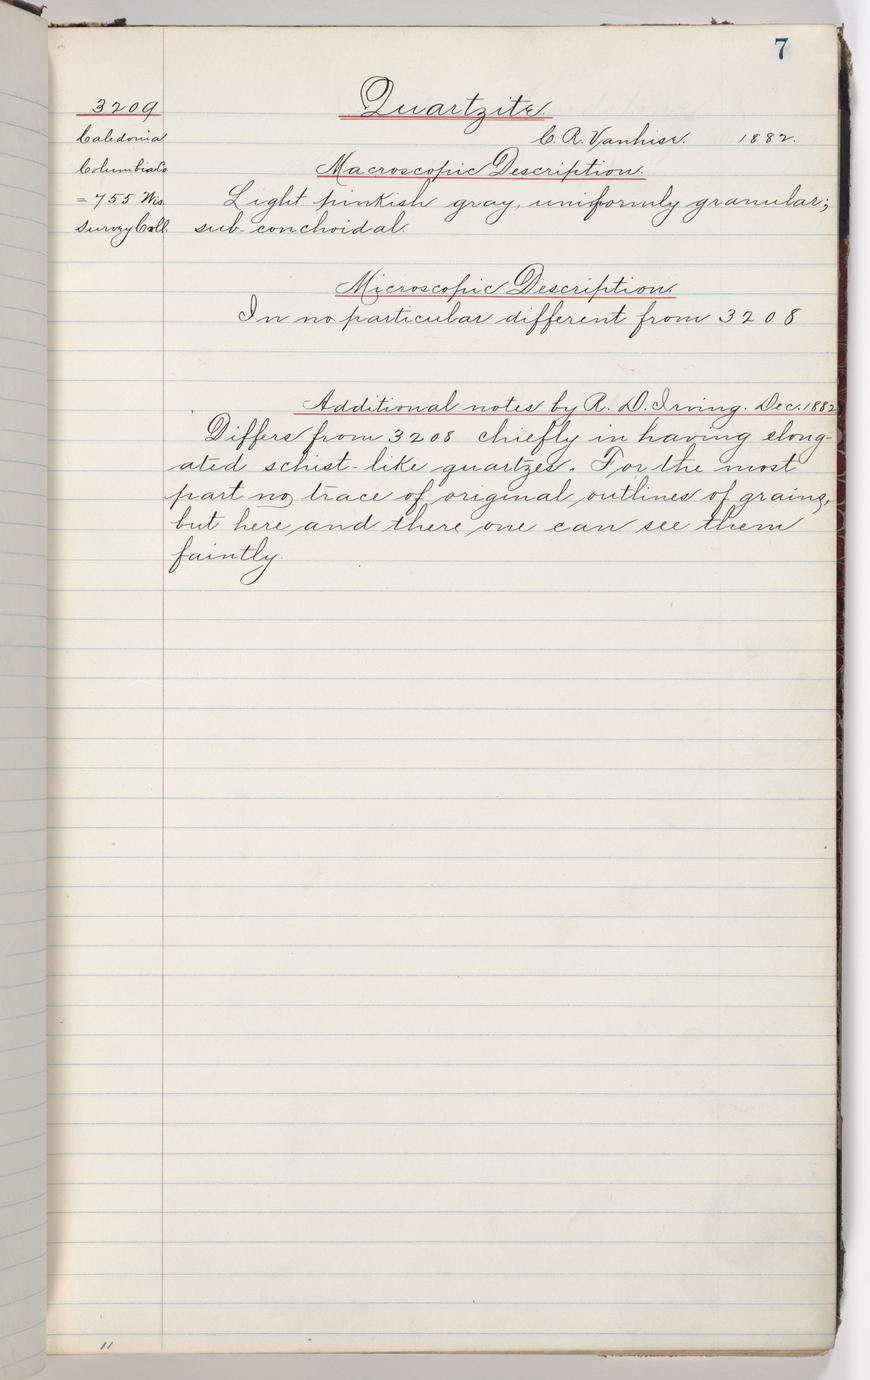 7
3209
Quartzite.
Caledonia
C. R. Vanhise. 1882.
Columbia Co.
Macroscopic Description.
= 755 Wis.
Light pinkish gray, uniformly granular;
Survey Coll.
sub-conchoidal.
Microscopic Description.
In no particular different from 3208
Additional notes by R. D. Irving. Dec. 1882
Differs from 3208 chiefly in having elong-
ated schist-like quartzes. For the most
part no trace of original outlines of grains,
but here and there one can see them
faintly.
11